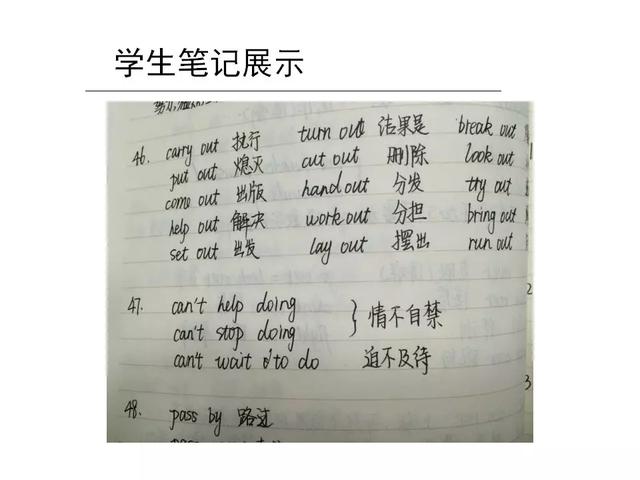 学生笔记展示
46. carry out 执行 turn out 结果是 break out
put out 熄灭 cut out 删除 look out
come out 出版 hand out 分发 try out
help out 解决 work out 分担 bring out
set out 出发 lay out 摆出 run out
47. can't help doing
can't stop doing } 情不自禁
can't wait to do 迫不及待
48. pass by 路过